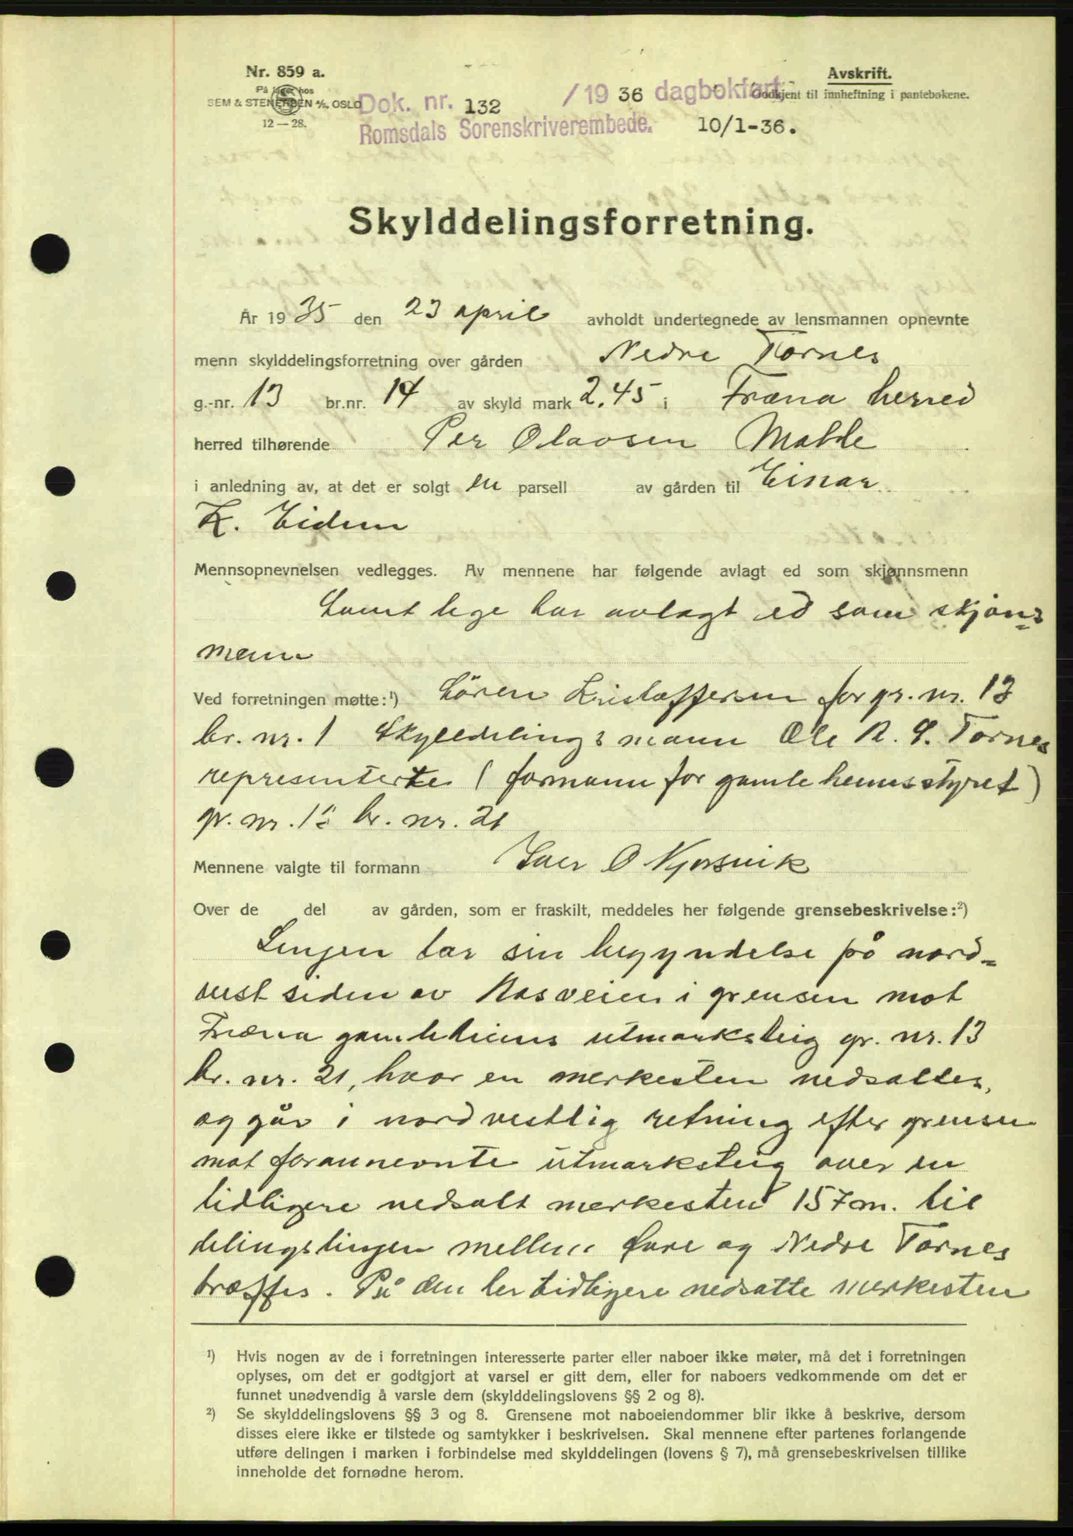 Nr. 859 a.
På lager hos
SEM & STENERSEN A/S, OSLO
12 — 28.
Avskrift.
Godkjent til innheftning i pantebøkene.
Dok. nr. 132 /1936 dagbokført
Romsdals Sorenskriverembede. 10/1-36.
Skylddelingsforretning.
År 1935 den 23 april avholdt undertegnede av lensmannen opnevnte
menn skylddelingsforretning over gården Nedre Tornes
g.-nr. 13 br.nr. 14 av skyld mark 2.45 i Fræna herred
herred tilhørende Per Olavsen Malde
i anledning av, at det er solgt en parsell av gården til Einar
K. Eidem
Mennsopnevnelsen vedlegges. Av mennene har følgende avlagt ed som skjønnsmenn
Samtlige har avlagt ed som skjøns=
menn
Ved forretningen møtte:¹) Søren Kristoffersen for gr. nr. 13
br. nr. 1 Skylddelingsmann Ole R. S. Tornes
representerte (formann for gamleheimsstyret)
gr. nr. 13 br. nr. 21
Mennene valgte til formann Iver O
Over de del av gården, som er fraskilt, meddeles her følgende grensebeskrivelse:²)
Linjen tar sin begyndelse på nord=
vest siden av Nasveien i grensen mot
Fræna gamleheims utmarksteig gr. nr. 13
br. nr. 21, hvor en merkesten nedsattes,
og går i nordvestlig retning efter grensen
mot forannevnte utmarksteig over en
tidligere nedsatt merkesten 157 m. til
delingslinjen mellem Øvre og Nedre Tornes
træffes. På den her tidligere nedsatte merkesten
¹) Hvis nogen av de i forretningen interesserte parter eller naboer ikke møter, må det i forretningen
oplyses, om det er godtgjort at varsel er gitt dem, eller for naboers vedkommende om det er
funnet unødvendig å varsle dem (skylddelingslovens §§ 2 og 8).
²) Se skylddelingslovens §§ 3 og 8. Grensene mot naboeiendommer blir ikke å beskrive, dersom
disses eiere ikke er tilstede og samtykker i beskrivelsen. Skal mennene efter partenes forlangende
utføre delingen i marken i forbindelse med skylddelingen (lovens § 7), må grensebeskrivelsen tillike
inneholde det fornødne herom.